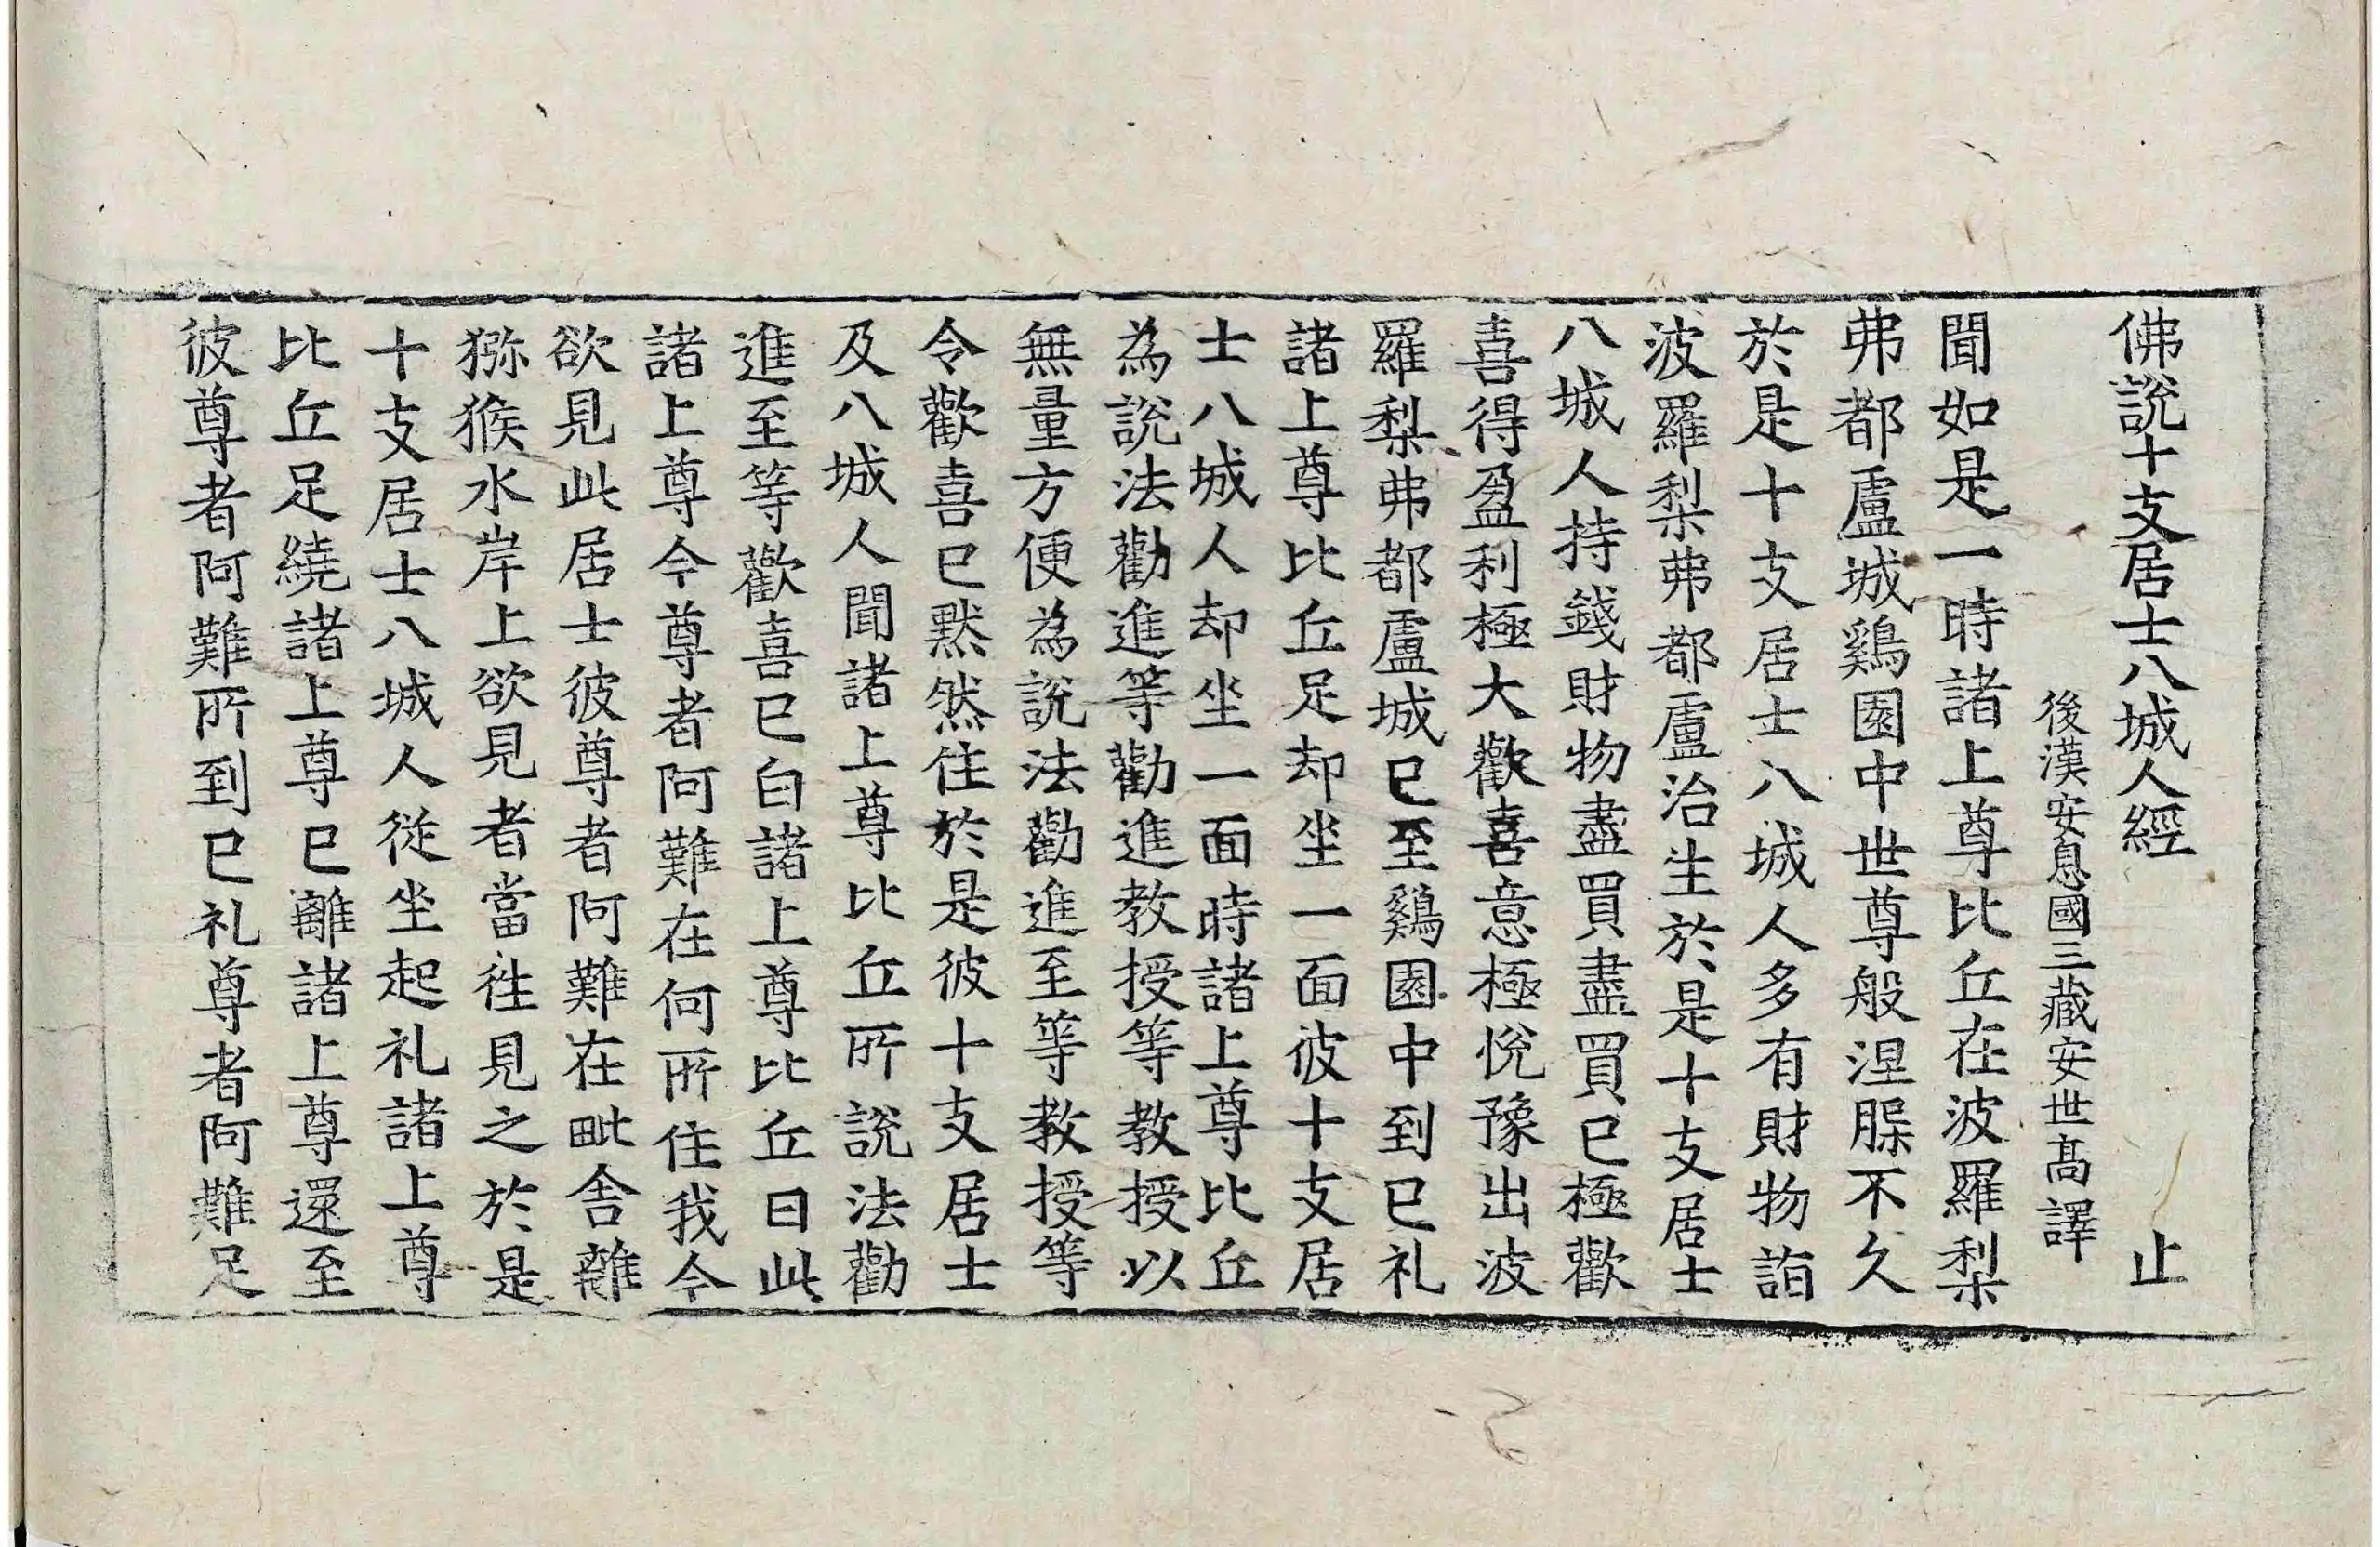 佛說十支居士八城人經　止
後漢安息國三藏安世高譯
聞如是一時諸上尊比丘在波羅梨
弗都盧城鷄園中世尊般涅槃不久
於是十支居士八城人多有財物詣
波羅梨弗都盧治生於是十支居士
八城人持錢財物盡買盡買已極歡
喜得盈利極大歡喜意極悅豫出波
羅梨弗都盧城已至鷄園中到已礼
諸上尊比丘足却坐一面彼十支居
士八城人却坐一面時諸上尊比丘
為說法勸進等勸進教授等教授以
無量方便為說法勸進至等教授等
令歡喜已默然住於是彼十支居士
及八城人聞諸上尊比丘所說法勸
進至等歡喜已白諸上尊比丘曰此
諸上尊今尊者阿難在何所住我今
欲見此居士彼尊者阿難在毗舍離
獼猴水岸上欲見者當往見之於是
十支居士八城人從坐起礼諸上尊
比丘足繞諸上尊已離諸上尊還至
彼尊者阿難所到已礼尊者阿難足